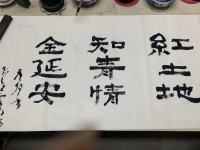 紅土地
知青情
金延安